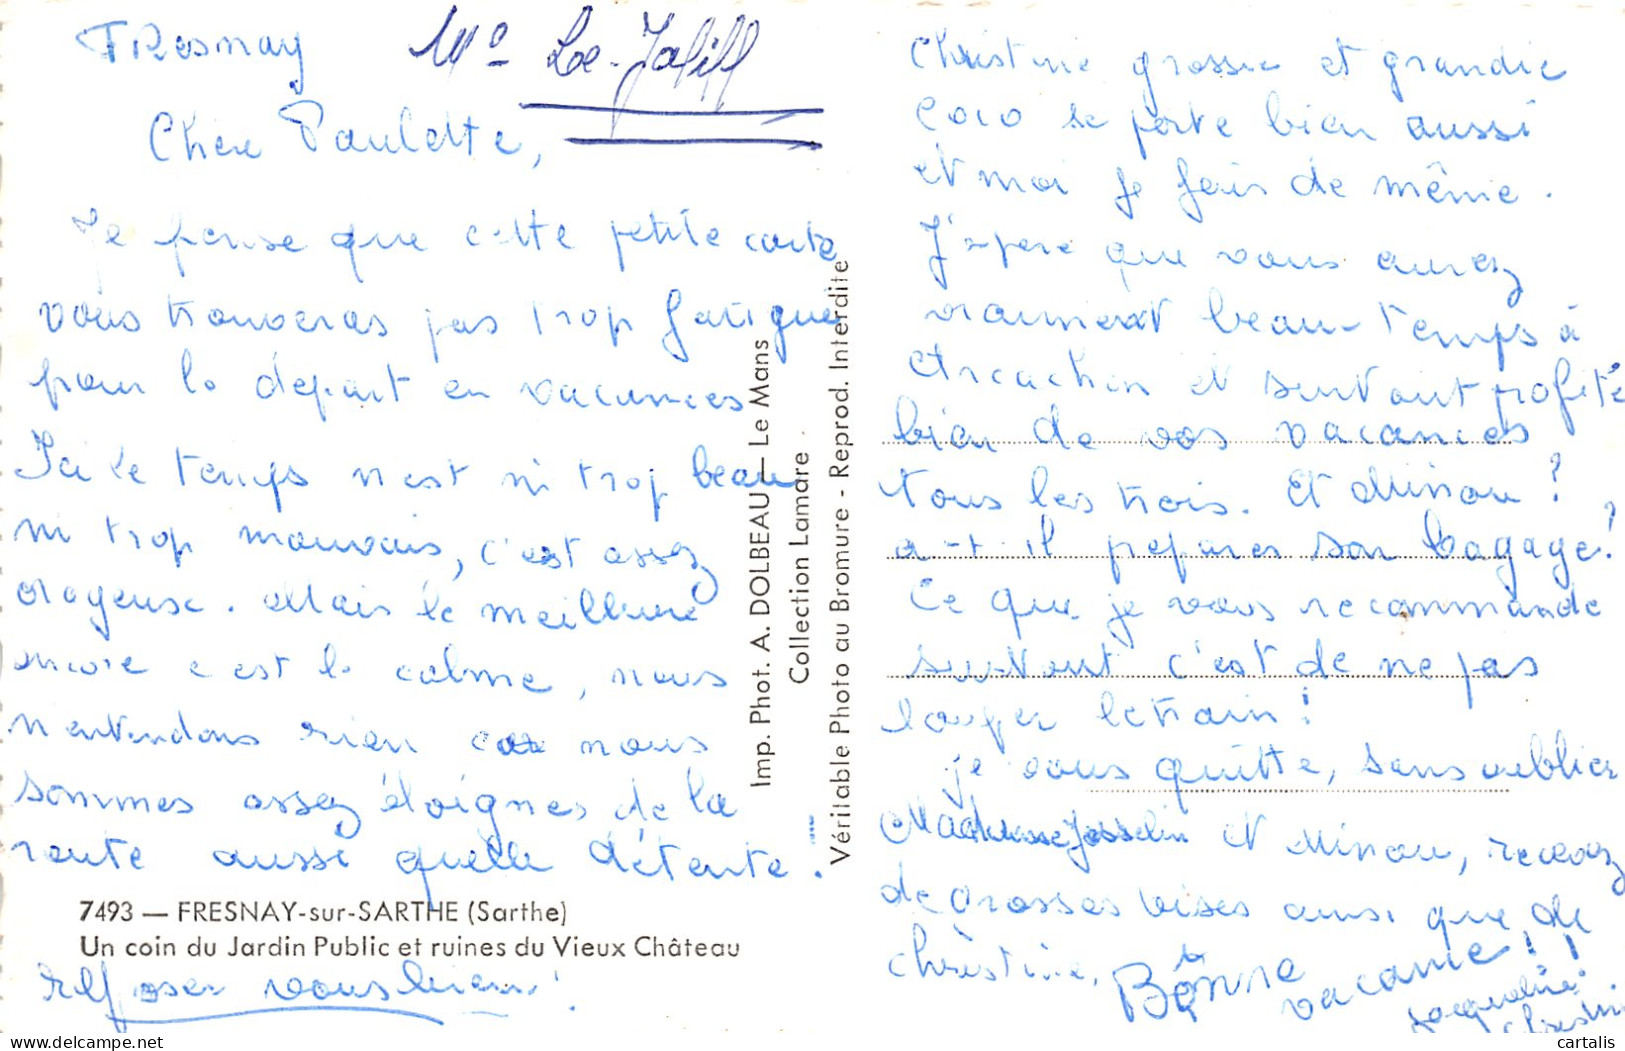 Fresnay
Mme Le-Jaliff
Chère Paulette,
Je pense que cette petite carte
vous trouveras pas trop fatigué
pour le départ en vacances
Ici le temps n'est ni trop beau
ni trop mauvais, c'est assez
orageuse. Mais le meilleure
encore c'est le calme, nous
n'entendons rien car nous
sommes assez éloignés de la
route aussi quelle détente.
7493 — FRESNAY-sur-SARTHE (Sarthe)
Un coin du Jardin Public et ruines du Vieux Château
reposer vous bien!
Imp. Phot. A. DOLBEAU — Le Mans
Collection Lamare
Véritable Photo au Bromure - Reprod. Interdite
Christine grossie et grandie
Coco se porte bien aussi
et moi je fais de même.
J'espère que vous aurez
vraiment beau-temps à
Arcachon et surtout profité
bien de vos vacances
tous les trois. Et Minou ?
a-t-il préparer son bagage?
Ce que je vous recommande
surtout c'est de ne pas
louper le train!
je vous quitte, sans oublier
Madame Josselin et Minou, recevez
de grosses bises ainsi que de
christine,
Bonne
vacance!!
Jacqueline
Christine
cartalis